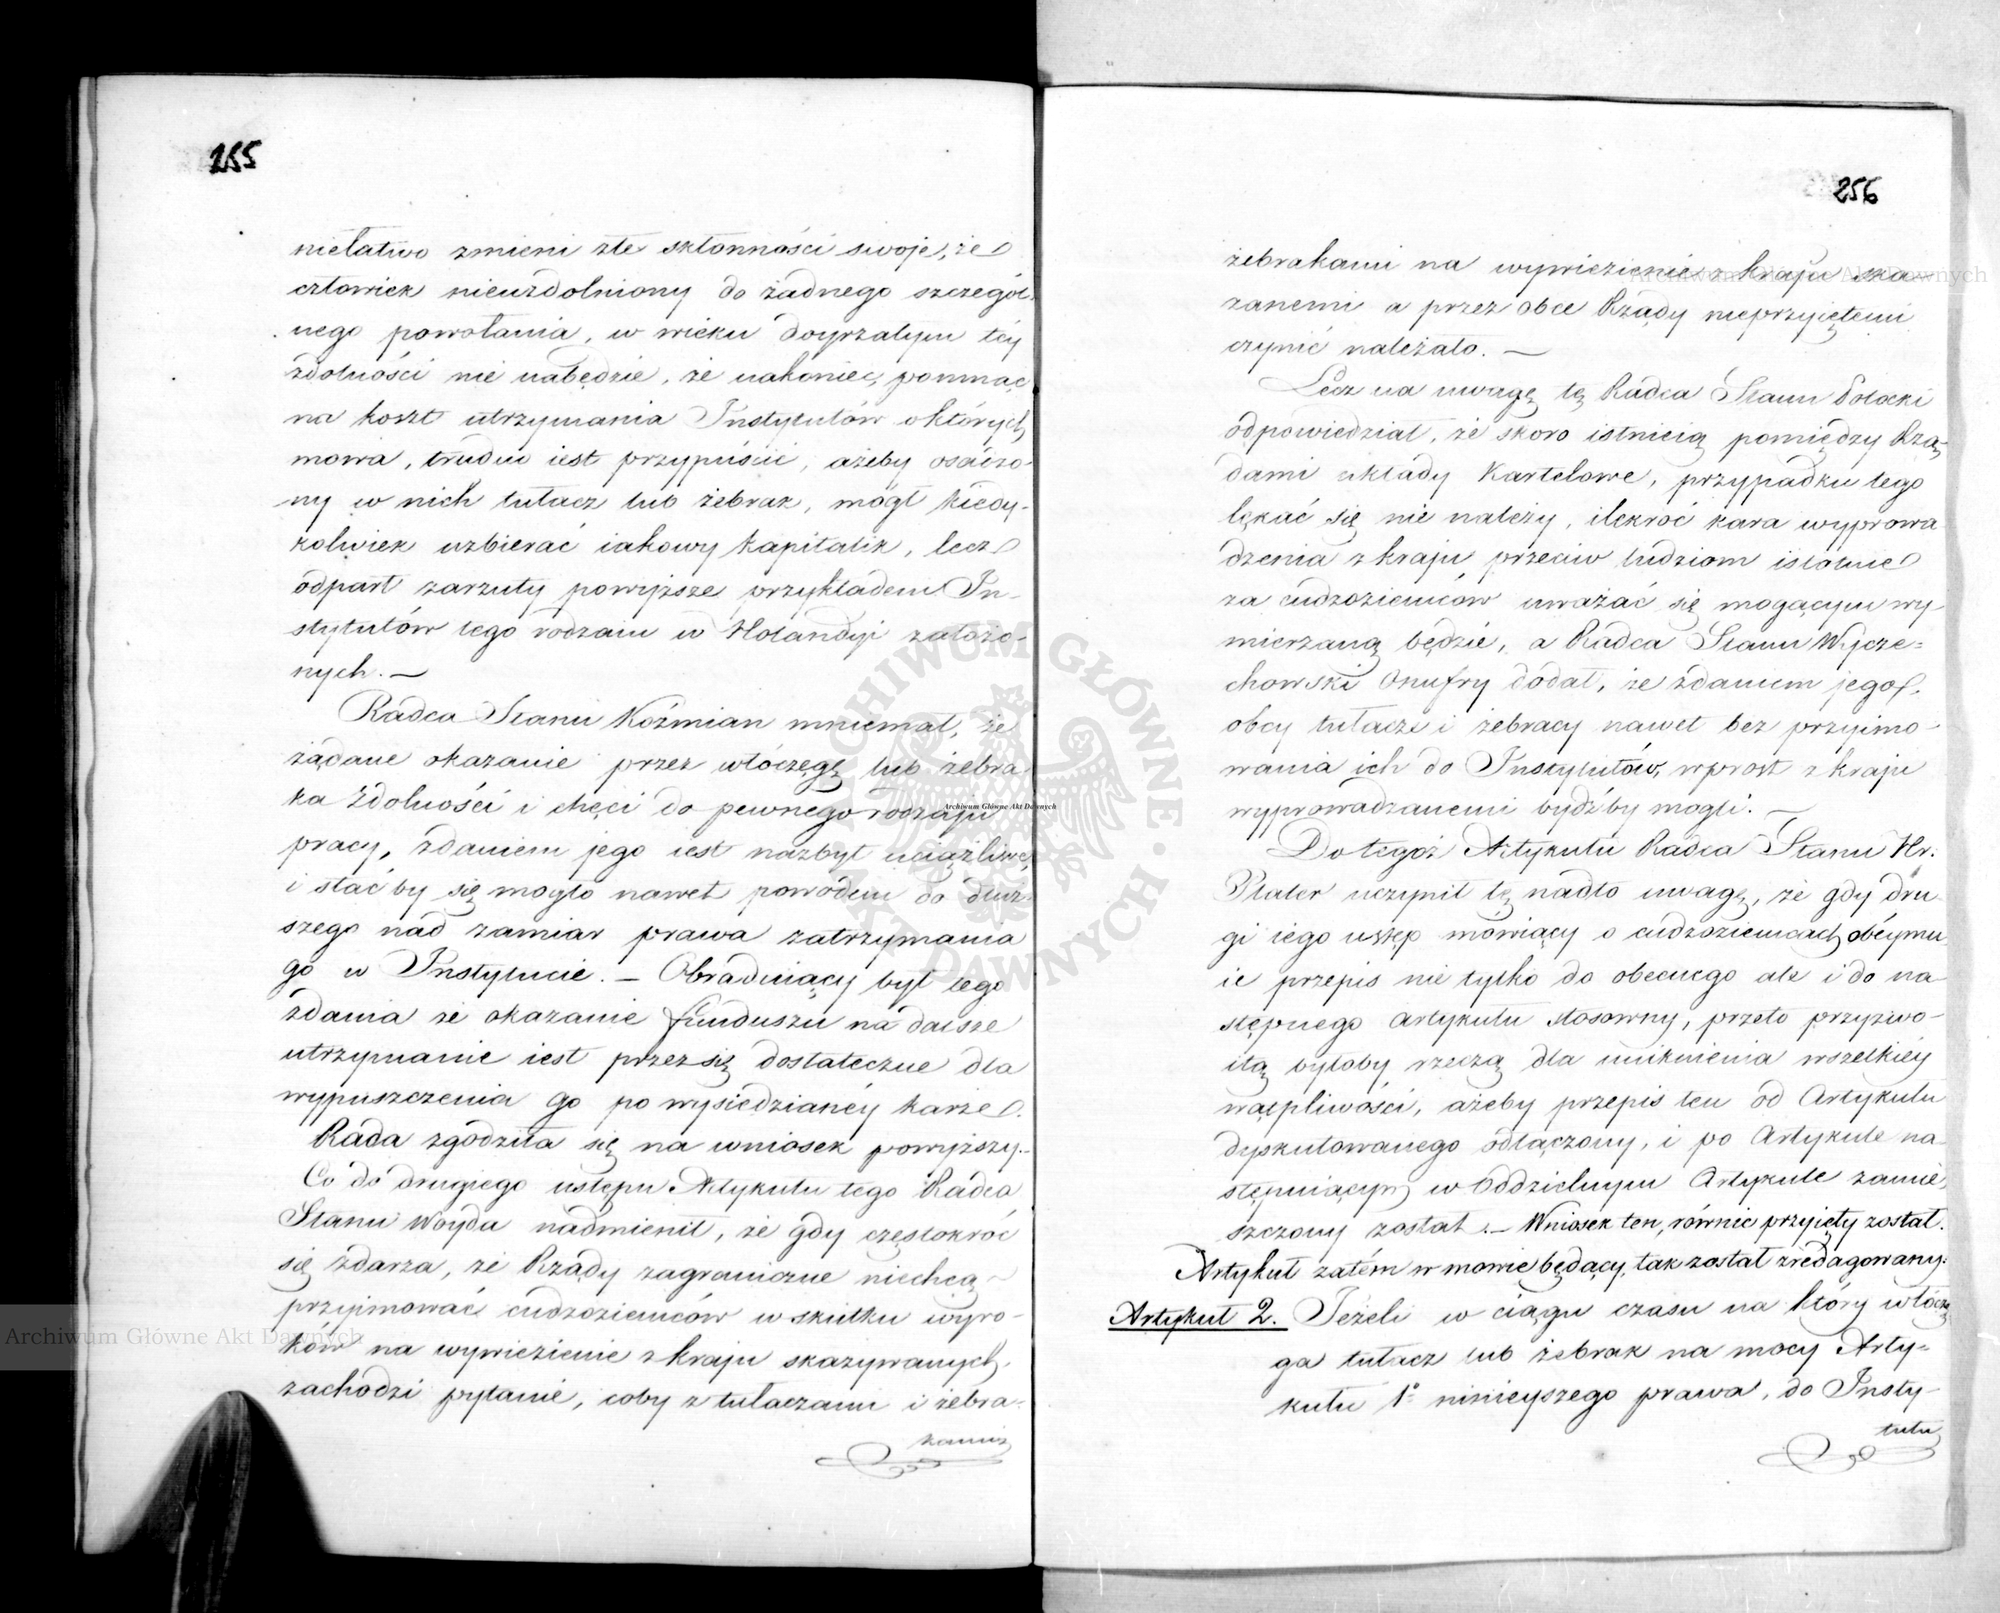 255
niełatwo zmieni złe skłonności swoje, że
człowiek nieuzdolniony do żadnego szczegól-
nego powołania, w wieku doyrzałym téy
zdolności nie nabędzie, że nakoniec, pomnąc
na koszt utrzymania Instytutów o których
mowa, trudno iest przypuścić, ażeby osadzo-
ny w nich tułacz lub żebrak, mógł kiedy-
kolwiek uzbierać iakowy kapitalik, lecz
odparł zarzuty powyższe przykładem In-
stytutów tego rodzaiu w Holandyi założo-
nych. —
Radca Stanu Koźmian mniemał, że
żądane okazanie przez włóczęgę lub żebra-
ka zdolności i chęci do pewnego rodzaju
pracy, zdaniem jego iest nazbyt uciążliwe,
i stać by się mogło nawet powodem do dłuż-
szego nad zamiar prawa zatrzymania
go w Instytucie. — Obraduiący był tego
zdania że okazanie funduszu na dalsze
utrzymanie iest przez się dostateczne dla
wypuszczenia go po wysiedzianéy karze.
Rada zgodziła się na wniosek powyższy.—
Co do drugiego ustępu Artykułu tego Radca
Stanu Woyda nadmienił, że gdy częstokróć
się zdarza, że Rządy zagraniczne niechcą
przyimować cudzoziemców w skutku wyro-
ków na wywiezienie z kraju skazywanych,
zachodzi pytanie, coby z tułaczami i żebra-
kami
256
żebrakami na wywiezienie z kraju ska-
zanemi a przez obce Rządy nieprzyiętemi
czynić należało. —
Lecz na uwagę tę Radca Stanu Potocki
odpowiedział, że skoro istnieią pomiędzy Rzą-
dami układy Kartelowe, przypadku tego
lękać się nie należy, ilekroć kara wyprowa
dzenia z kraju przeciw ludziom istotnie
za cudzoziemców uważać się mogącym wy-
mierzaną będzie, a Radca Stanu Wycze-
chowski Onufry dodał, że zdaniem jego,
obcy tułacze i żebracy nawet bez przyimo-
wania ich do Instytutów, wprost z kraju
wyprowadzanemi bydźby mogli. —
Do tegoż Artykułu Radca Stanu Hr.
Plater uczynił tę nadto uwagę, że gdy dru-
gi iego ustęp mówiący o cudzoziemcach, obéymu-
ie przepis nie tylko do obecnego ale i do na-
stępnego Artykułu stosowny, przeto przyzwo-
itą byłoby rzeczą dla uniknienia wszelkiéy
wątpliwości, ażeby przepis ten od Artykułu
dyskutowanego odłączony, i po Artykule na-
stępuiącym w Oddzielnym Artykule zamie-
szczony został. — Wniosek ten, równie przyięty został.
Artykuł zatém w mowie będący, tak został zredagowany:
Artykuł 2. Jeżeli w ciągu czasu na który włóczę
ga tułacz lub żebrak na mocy Arty-
kułu 1º ninieyszego prawa, do Insty-
tutu
Archiwum Główne Akt Dawnych
Archiwum Główne Akt Dawnych
Archiwum Główne Akt Dawnych
ARCHIWUM GŁÓWNE · AKT DAWNYCH ·